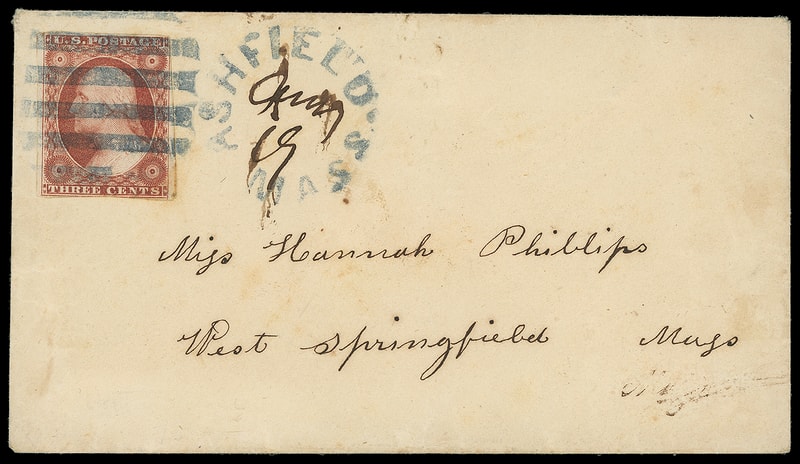 U.S. POSTAGE
THREE CENTS
ASHFIELD
MAS S.
19
Miss Hannah Phillips
West Springfield Mass